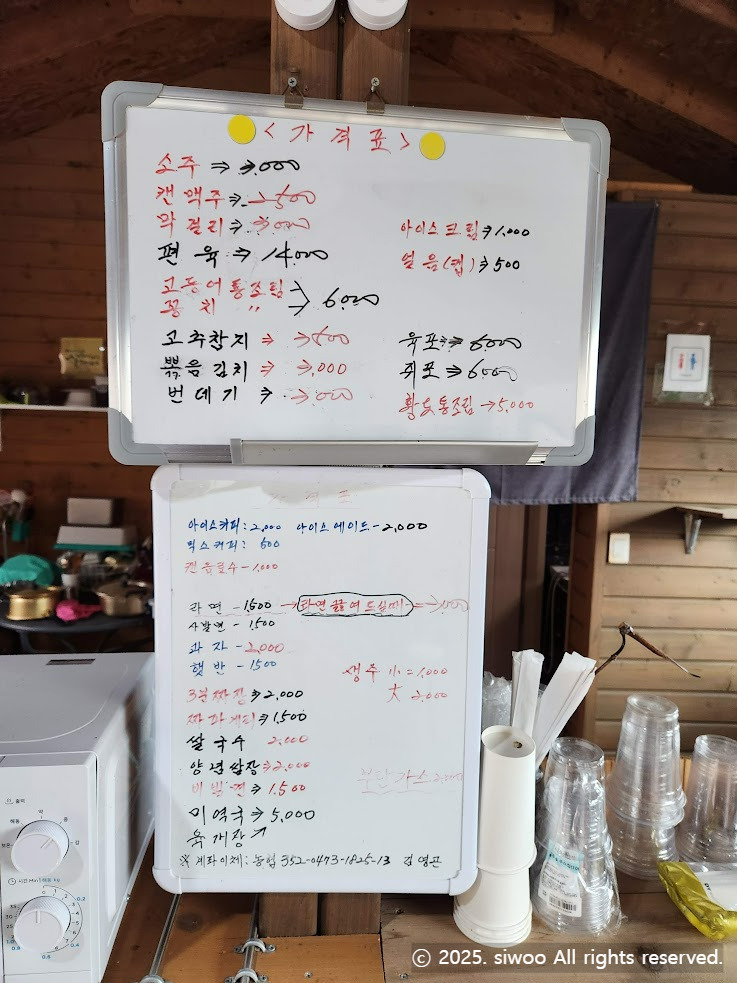 <가격표>
소주 ⇒ 3,000
캔맥주 ⇒ 2500
막걸리 ⇒ 3000
편육 ⇒ 14000
고등어통조림
꽁치 〃 > 6000
고추참치 ⇒ 3500
볶음김치 ⇒ 3,000
번데기 ⇒ 3000
아이스크림 ⇒ 1,000
얼음(컵) ⇒ 500
육포 ⇒ 6000
쥐포 ⇒ 6000
황도통조림 → 5,000
가격표
아이스커피: 2,000 아이스에이드 - 2,000
믹스커피: 500
캔음료수 - 1,000
라면 - 1,500 → 라면 끓여 드실때 = 3,000
사발면 - 1,500
과자 - 2,000
햇반 - 1500
3분짜장 ⇒ 2,000
짜파게티 ⇒ 1,500
쌀국수 2,000
양념쌈장 ⇒ 2,000
비빔면 ⇒ 1,500
미역국 ⇒ 5,000
육개장 ↗
생수 小 = 1,000
大 2,000
부탄가스 2,000
※ 계좌이체: 농협 352-0473-1825-13
ⓒ 2025. siwoo All rights reserved.